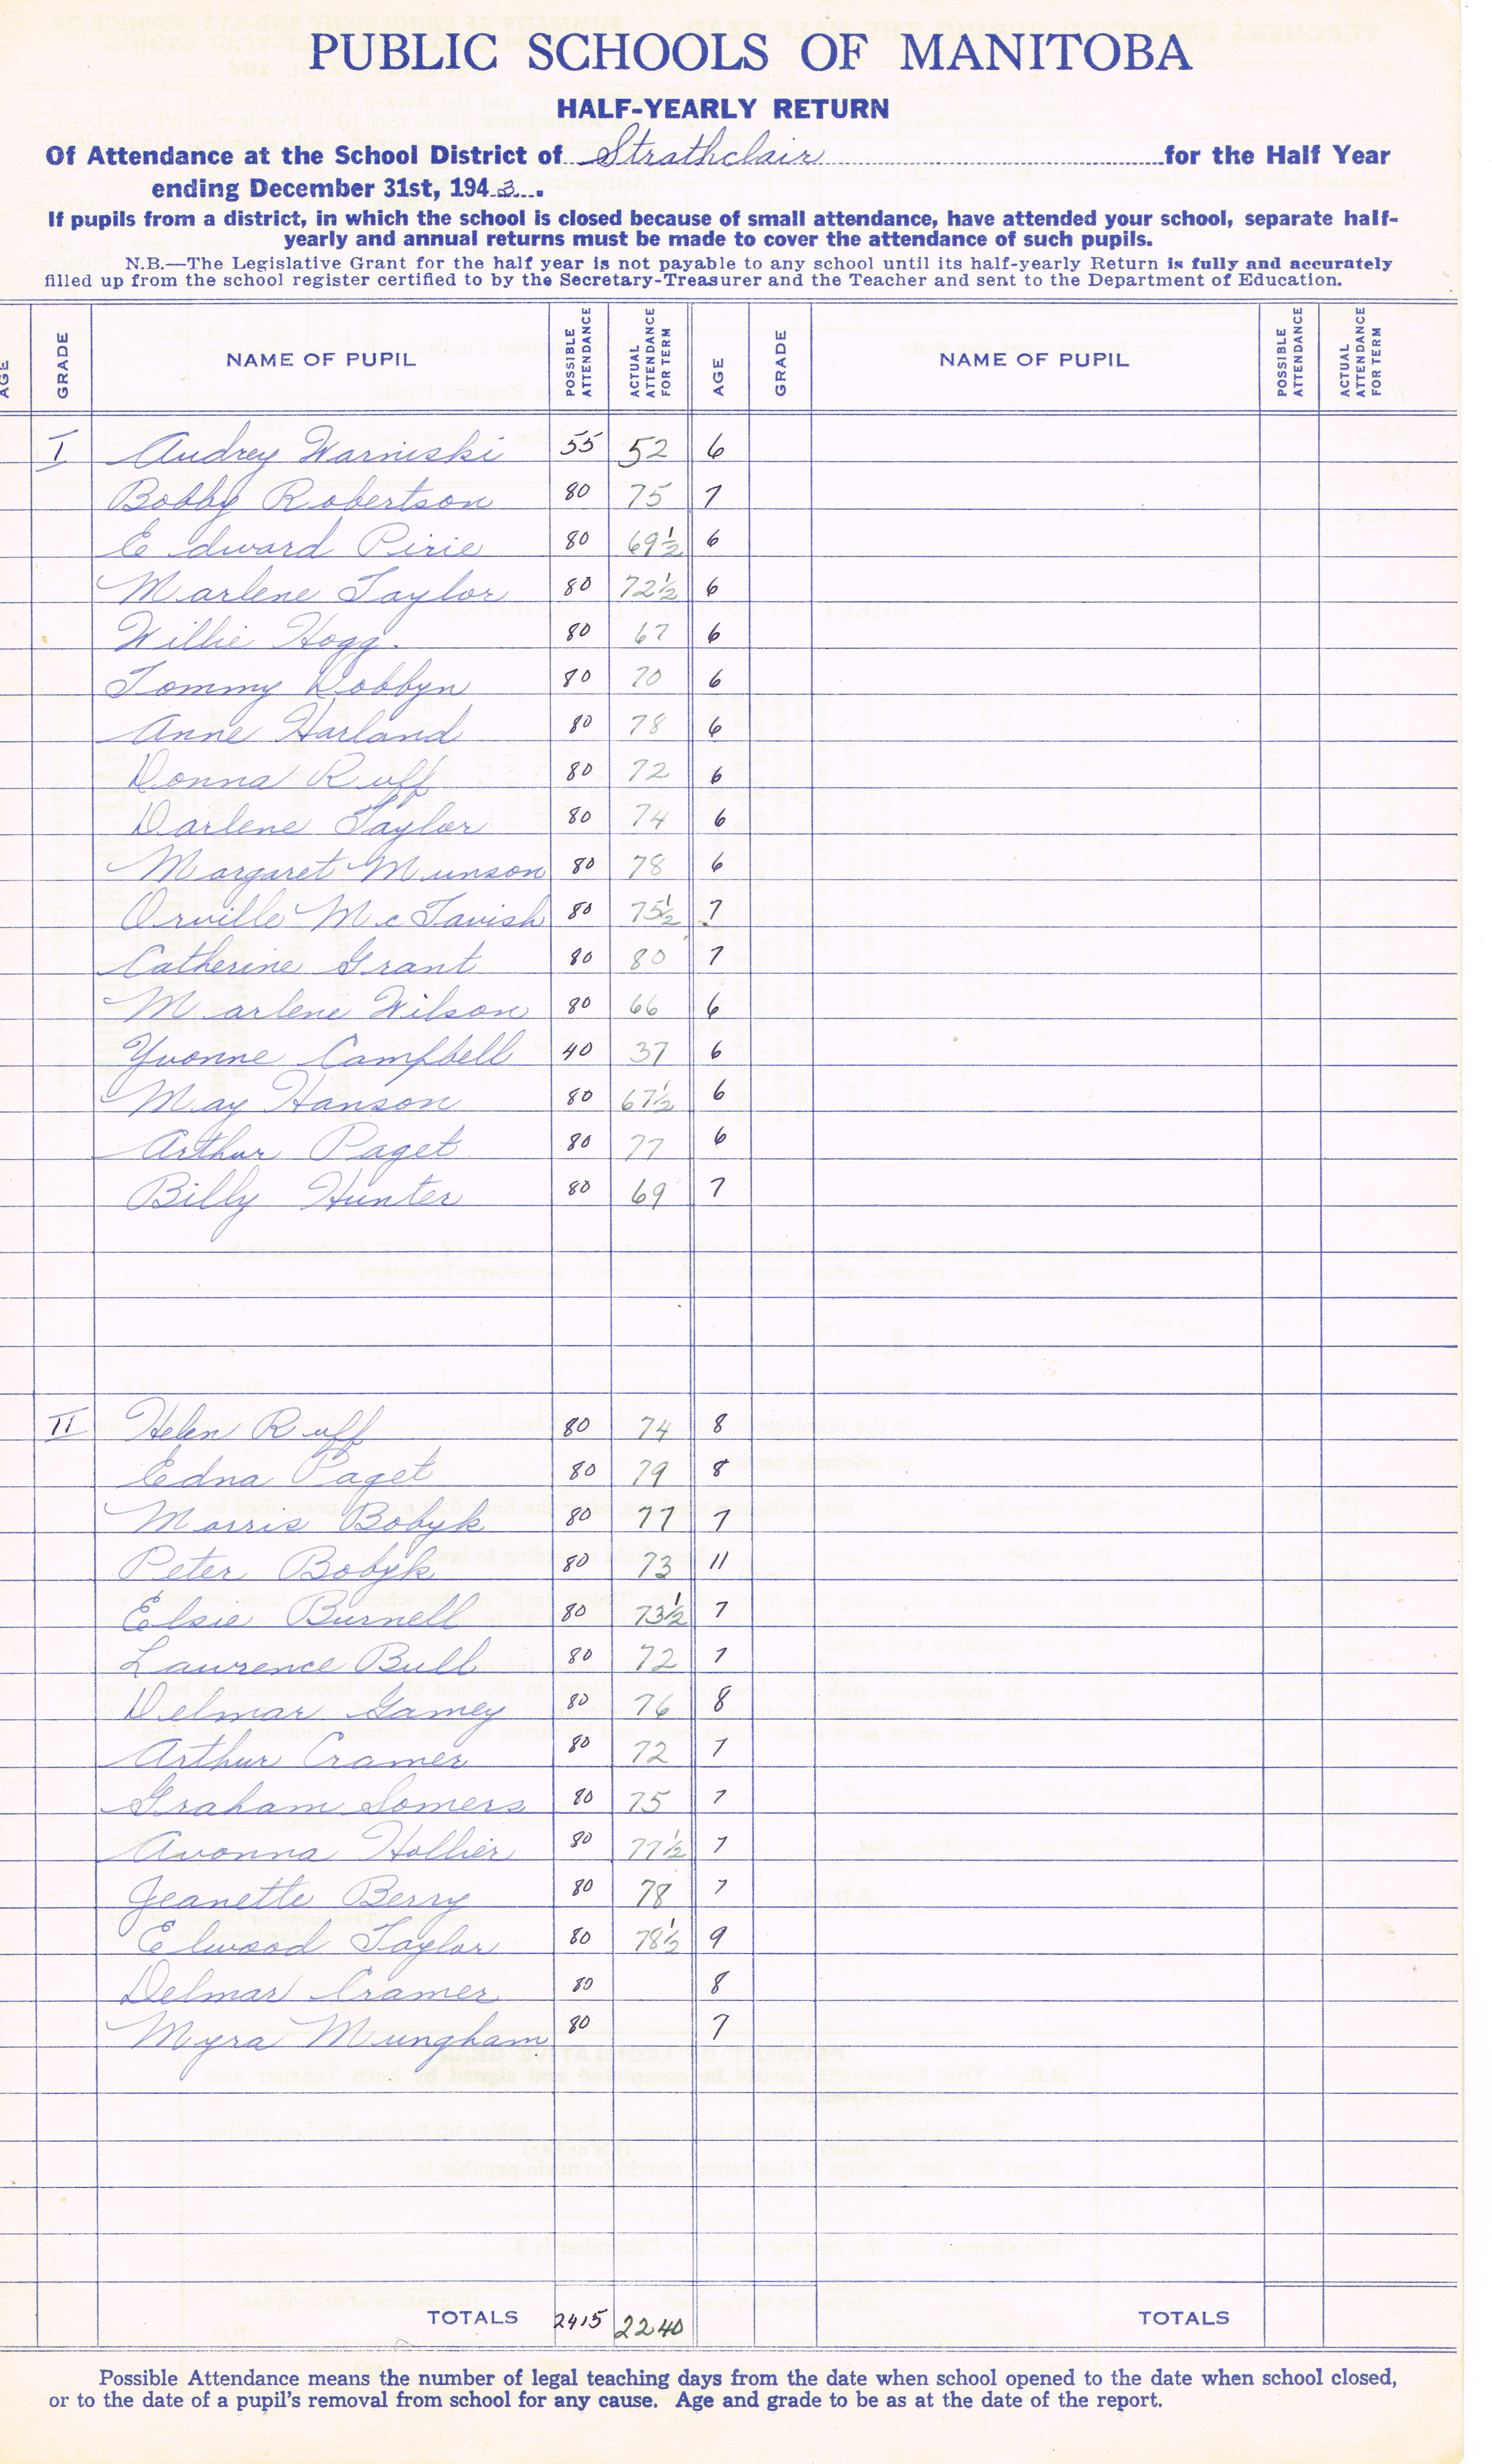 PUBLIC SCHOOLS OF MANITOBA
HALF-YEARLY RETURN
Of Attendance at the School District of Strathclair for the Half Year
ending December 31st, 1943.
If pupils from a district, in which the school is closed because of small attendance, have attended your school, separate half-
yearly and annual returns must be made to cover the attendance of such pupils.
N.B.—The Legislative Grant for the half year is not payable to any school until its half-yearly Return is fully and accurately
filled up from the school register certified to by the Secretary-Treasurer and the Teacher and sent to the Department of Education.
AGE GRADE NAME OF PUPIL POSSIBLE ATTENDANCE ACTUAL ATTENDANCE FOR TERM AGE GRADE NAME OF PUPIL POSSIBLE ATTENDANCE ACTUAL ATTENDANCE FOR TERM
I Audrey Warniski 55 52 6
Bobby Robertson 80 75 7
Edward Pirie 80 69½ 6
Marlene Taylor 80 72½ 6
Willie Hogg. 80 67 6
Tommy Dobbyn 80 70 6
Anne Harland 80 78 6
Donna Ruff 80 72 6
Darlene Taylor 80 74 6
Margaret Munson 80 78 6
Orville McTavish 80 75½ 7
Catherine Grant 80 80 7
Marlene Wilson 80 66 6
Yvonne Campbell 40 37 6
May Hanson 80 67½ 6
Arthur Paget 80 77 6
Billy Hunter 80 69 7
II Helen Ruff 80 74 8
Edna Paget 80 79 8
Morris Bobyk 80 77 7
Peter Bobyk 80 73 11
Elsie Burnell 80 73½ 7
Lawrence Bull 80 72 7
Delmar Gamey 80 76 8
Arthur Cramer 80 72 7
Graham Somers 80 75 7
Avonna Hollier 80 77½ 7
Jeanette Berry 80 78 7
Elwood Taylor 80 78½ 9
Delmar Cramer 80 8
Myra Mungham 80 7
TOTALS 2415 2240 TOTALS
Possible Attendance means the number of legal teaching days from the date when school opened to the date when school closed,
or to the date of a pupil's removal from school for any cause. Age and grade to be as at the date of the report.